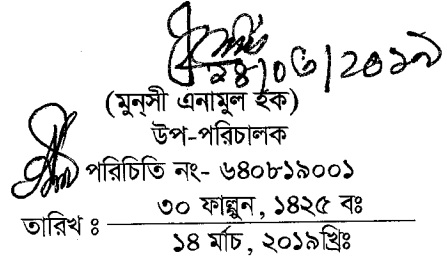 ১৪|০৩|২০১৯
(মুন্‌সী এনামুল হক)
উপ-পরিচালক
পরিচিতি নং- ৬৪০৮১৯০০১
৩০ ফাল্গুন, ১৪২৫ বঃ
তারিখ ঃ
১৪ র্মাচ, ২০১৯খ্রিঃ